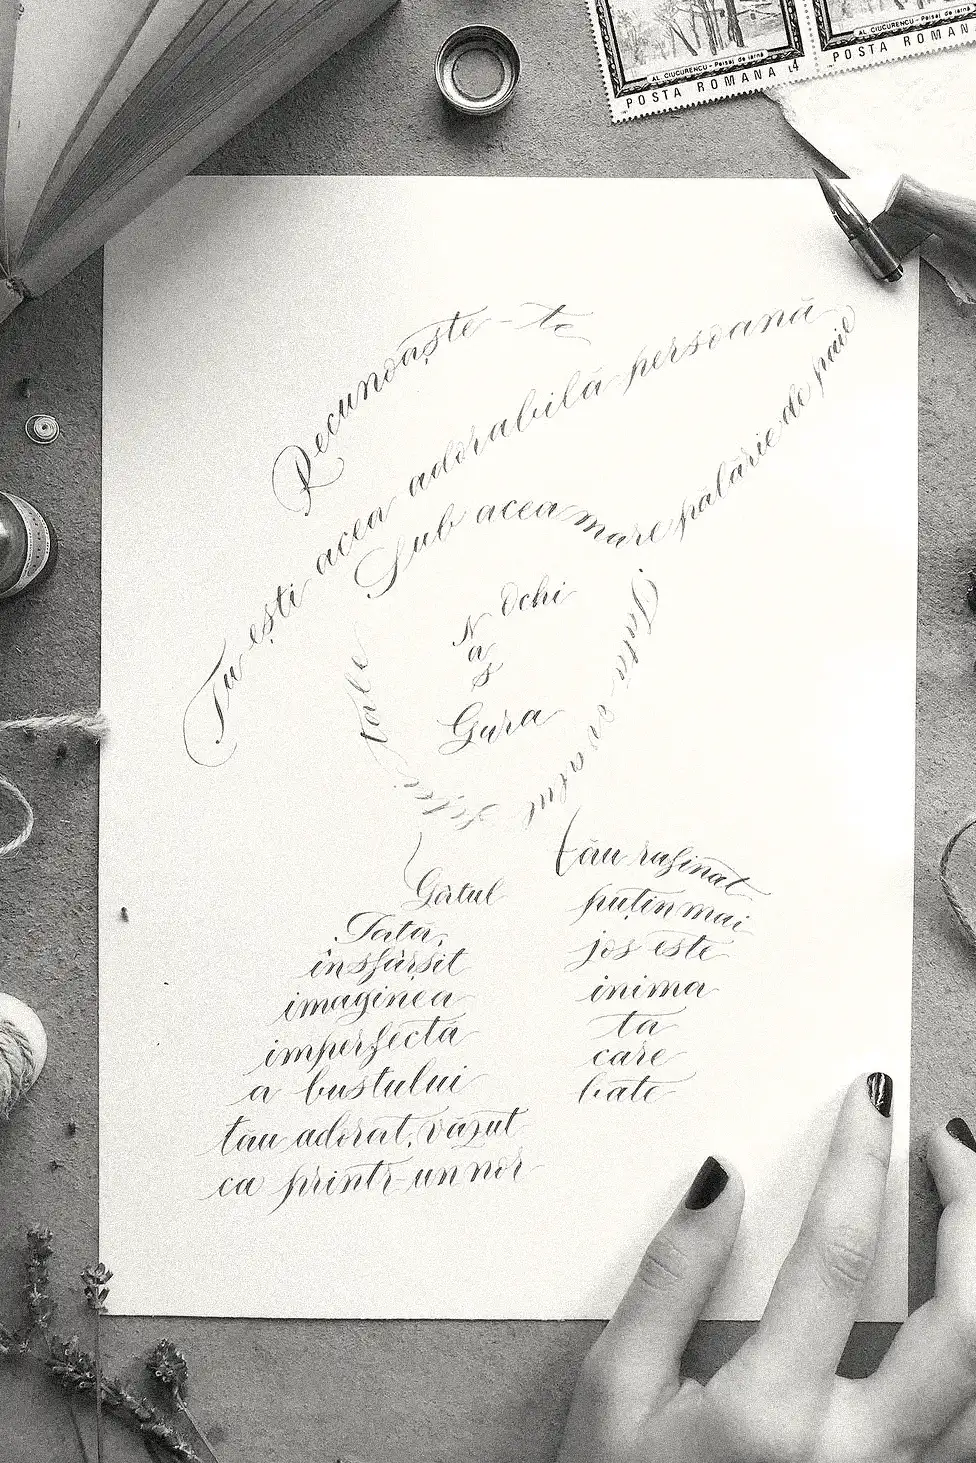 AL CIUCURENCU - Peisaj de iarnă
POSTA ROMANA L4
AL CIUCURENCU - Peisaj de iarnă
POSTA ROMAN
Recunoaște-te
Tu ești acea adorabilă persoană
Sub acea mare pălărie de paie
Ochi
Nas
Gura
Iată ovalul
feței tale
Gâtul
tău rafinat
Iata,
însfârșit
imaginea
imperfectă
a bustului
tău adorat, văzut
ca printr-un nor
puțin mai
jos este
inima
ta
care
bate